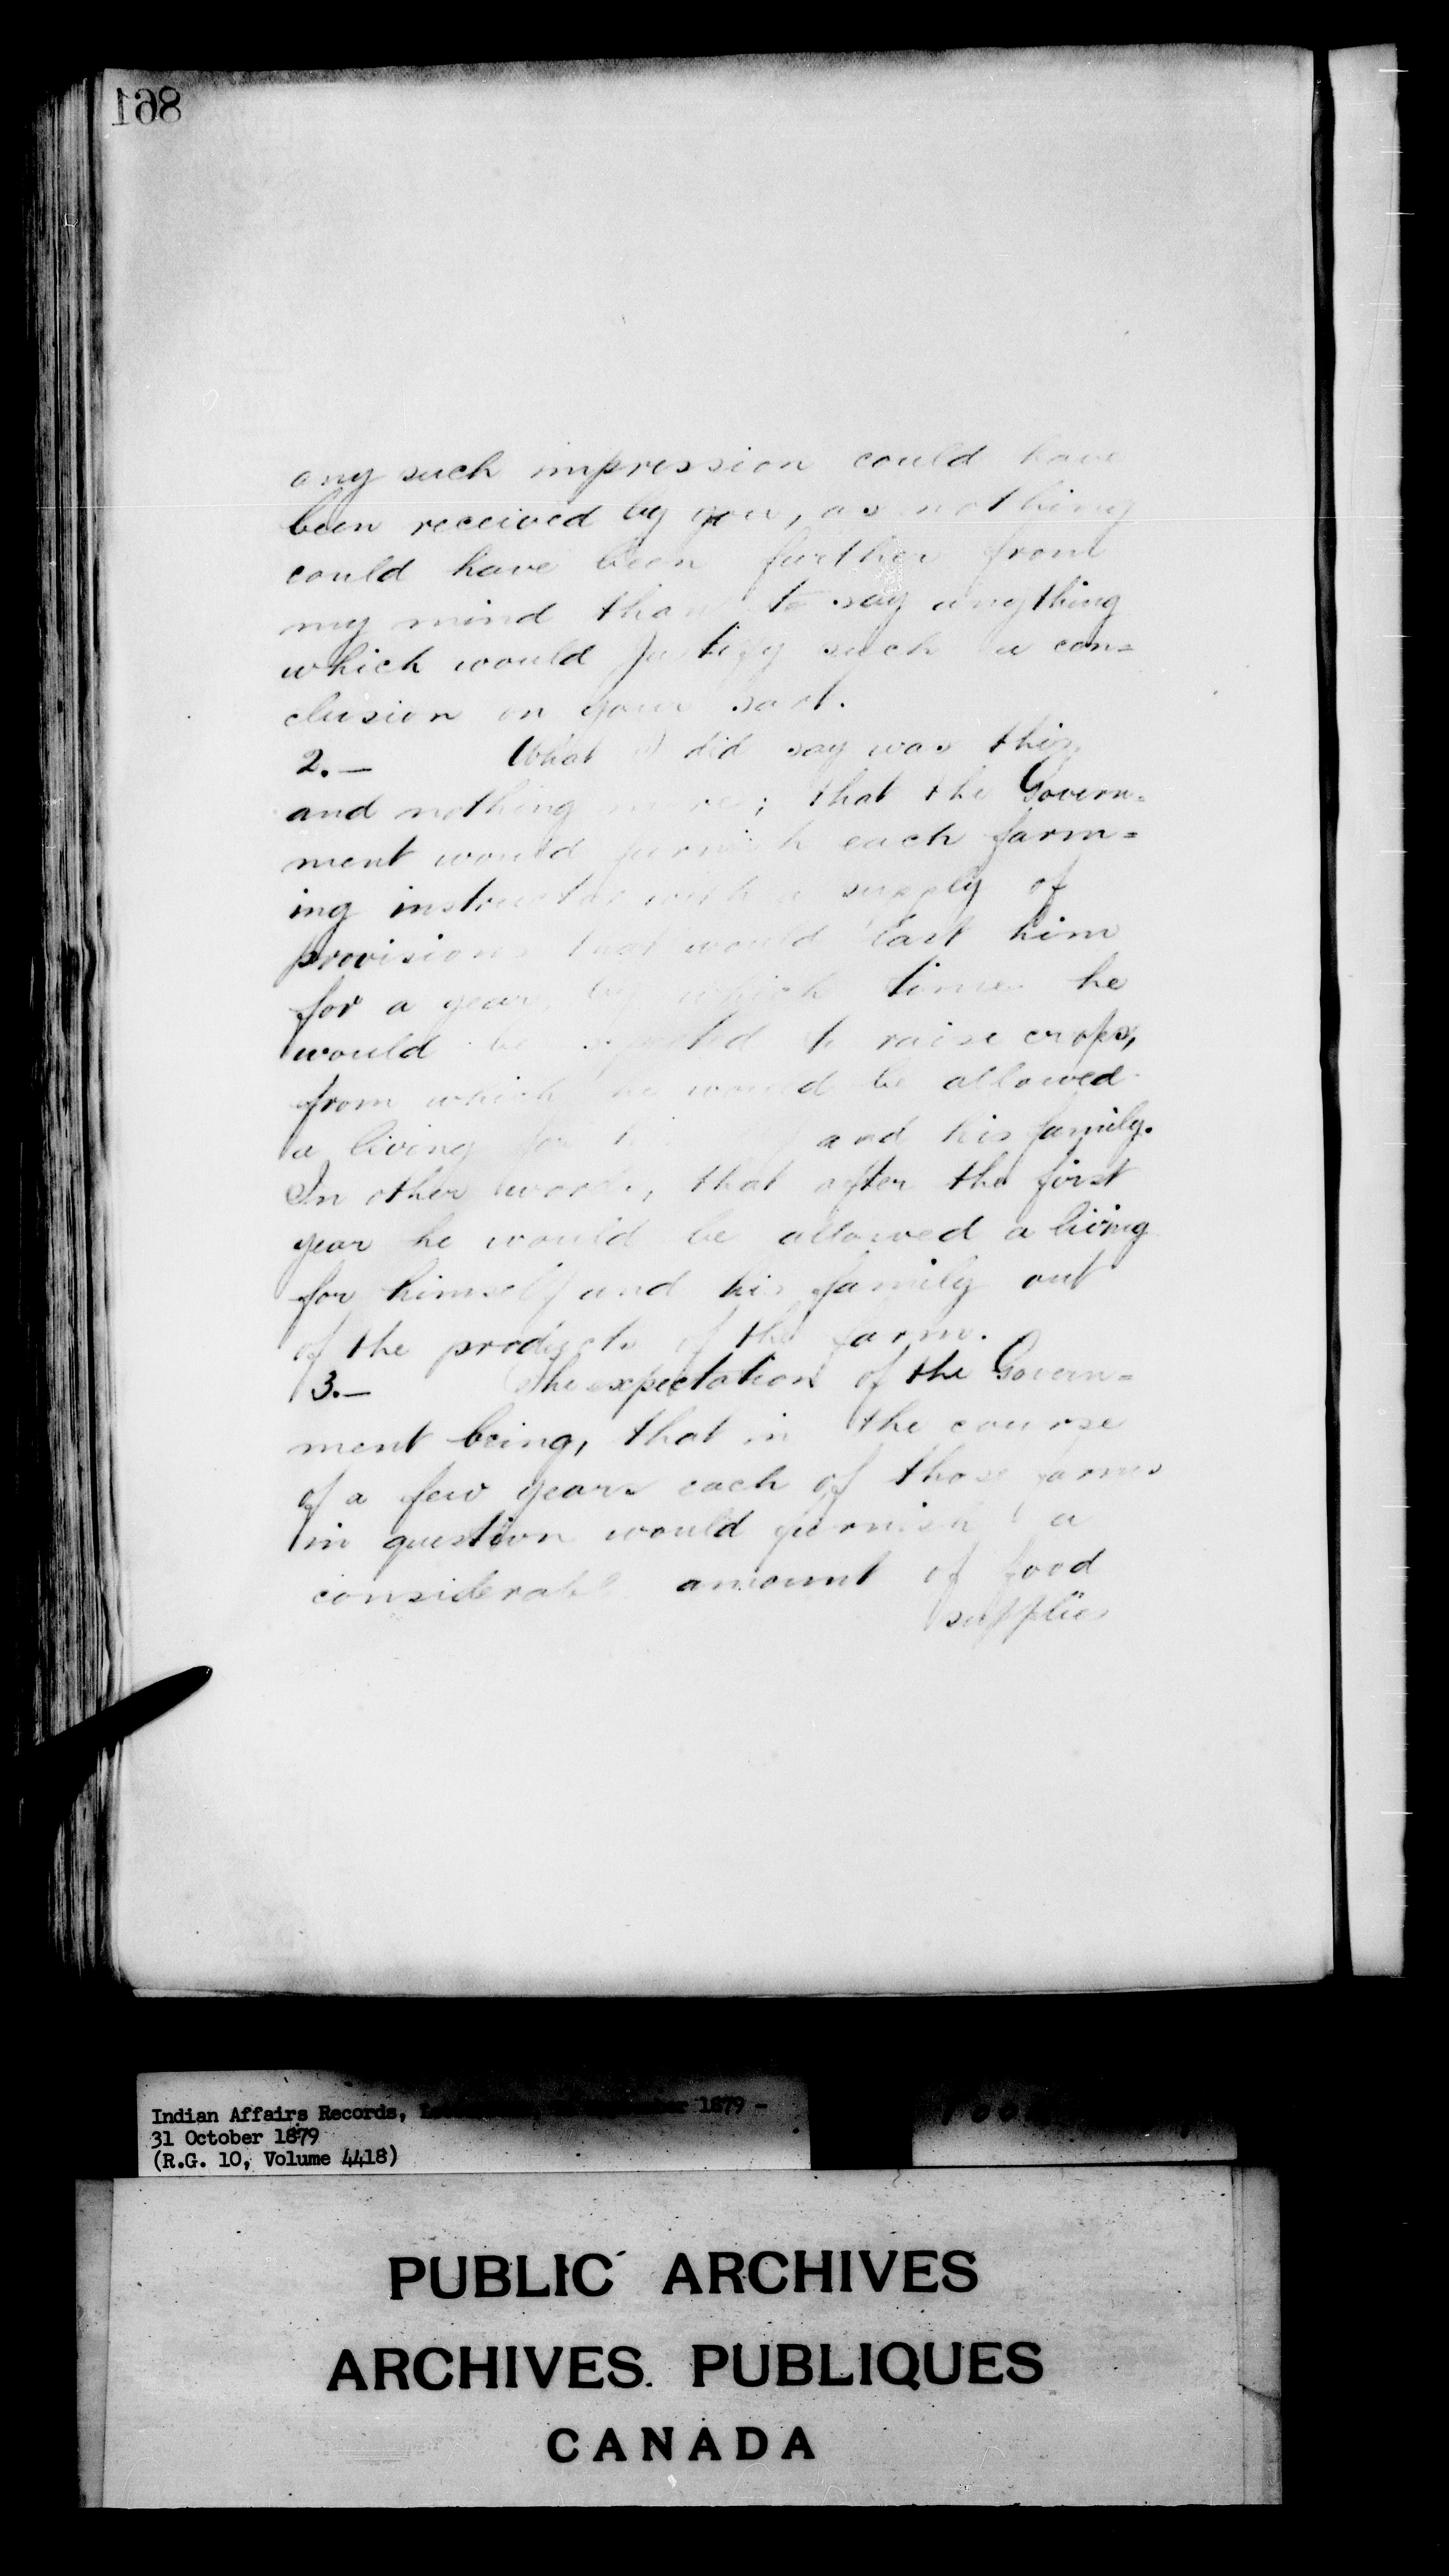 168
any such impression could have
been received by you, as nothing
could have been further from
my mind than to say anything
which would justify such a con=
clusion on your part.
2.— What I did say was this,
and nothing more; that the Govern=
ment would furnish each farm=
ing instructor with a supply of
provisions that would last him
for a year, by which time he
would be expected to raise crops,
from which he would be allowed
a living for himself and his family.
In other words, that after the first
year he would be allowed a living
for himself and his family out
of the products of the farm.
3.— The expectation of the Govern=
ment being, that in the course
of a few years each of those farms
in question would furnish a
considerable amount of food
supplies
Indian Affairs Records, 1879 -
31 October 1879
(R.G. 10, Volume 4418)
PUBLIC ARCHIVES
ARCHIVES PUBLIQUES
CANADA